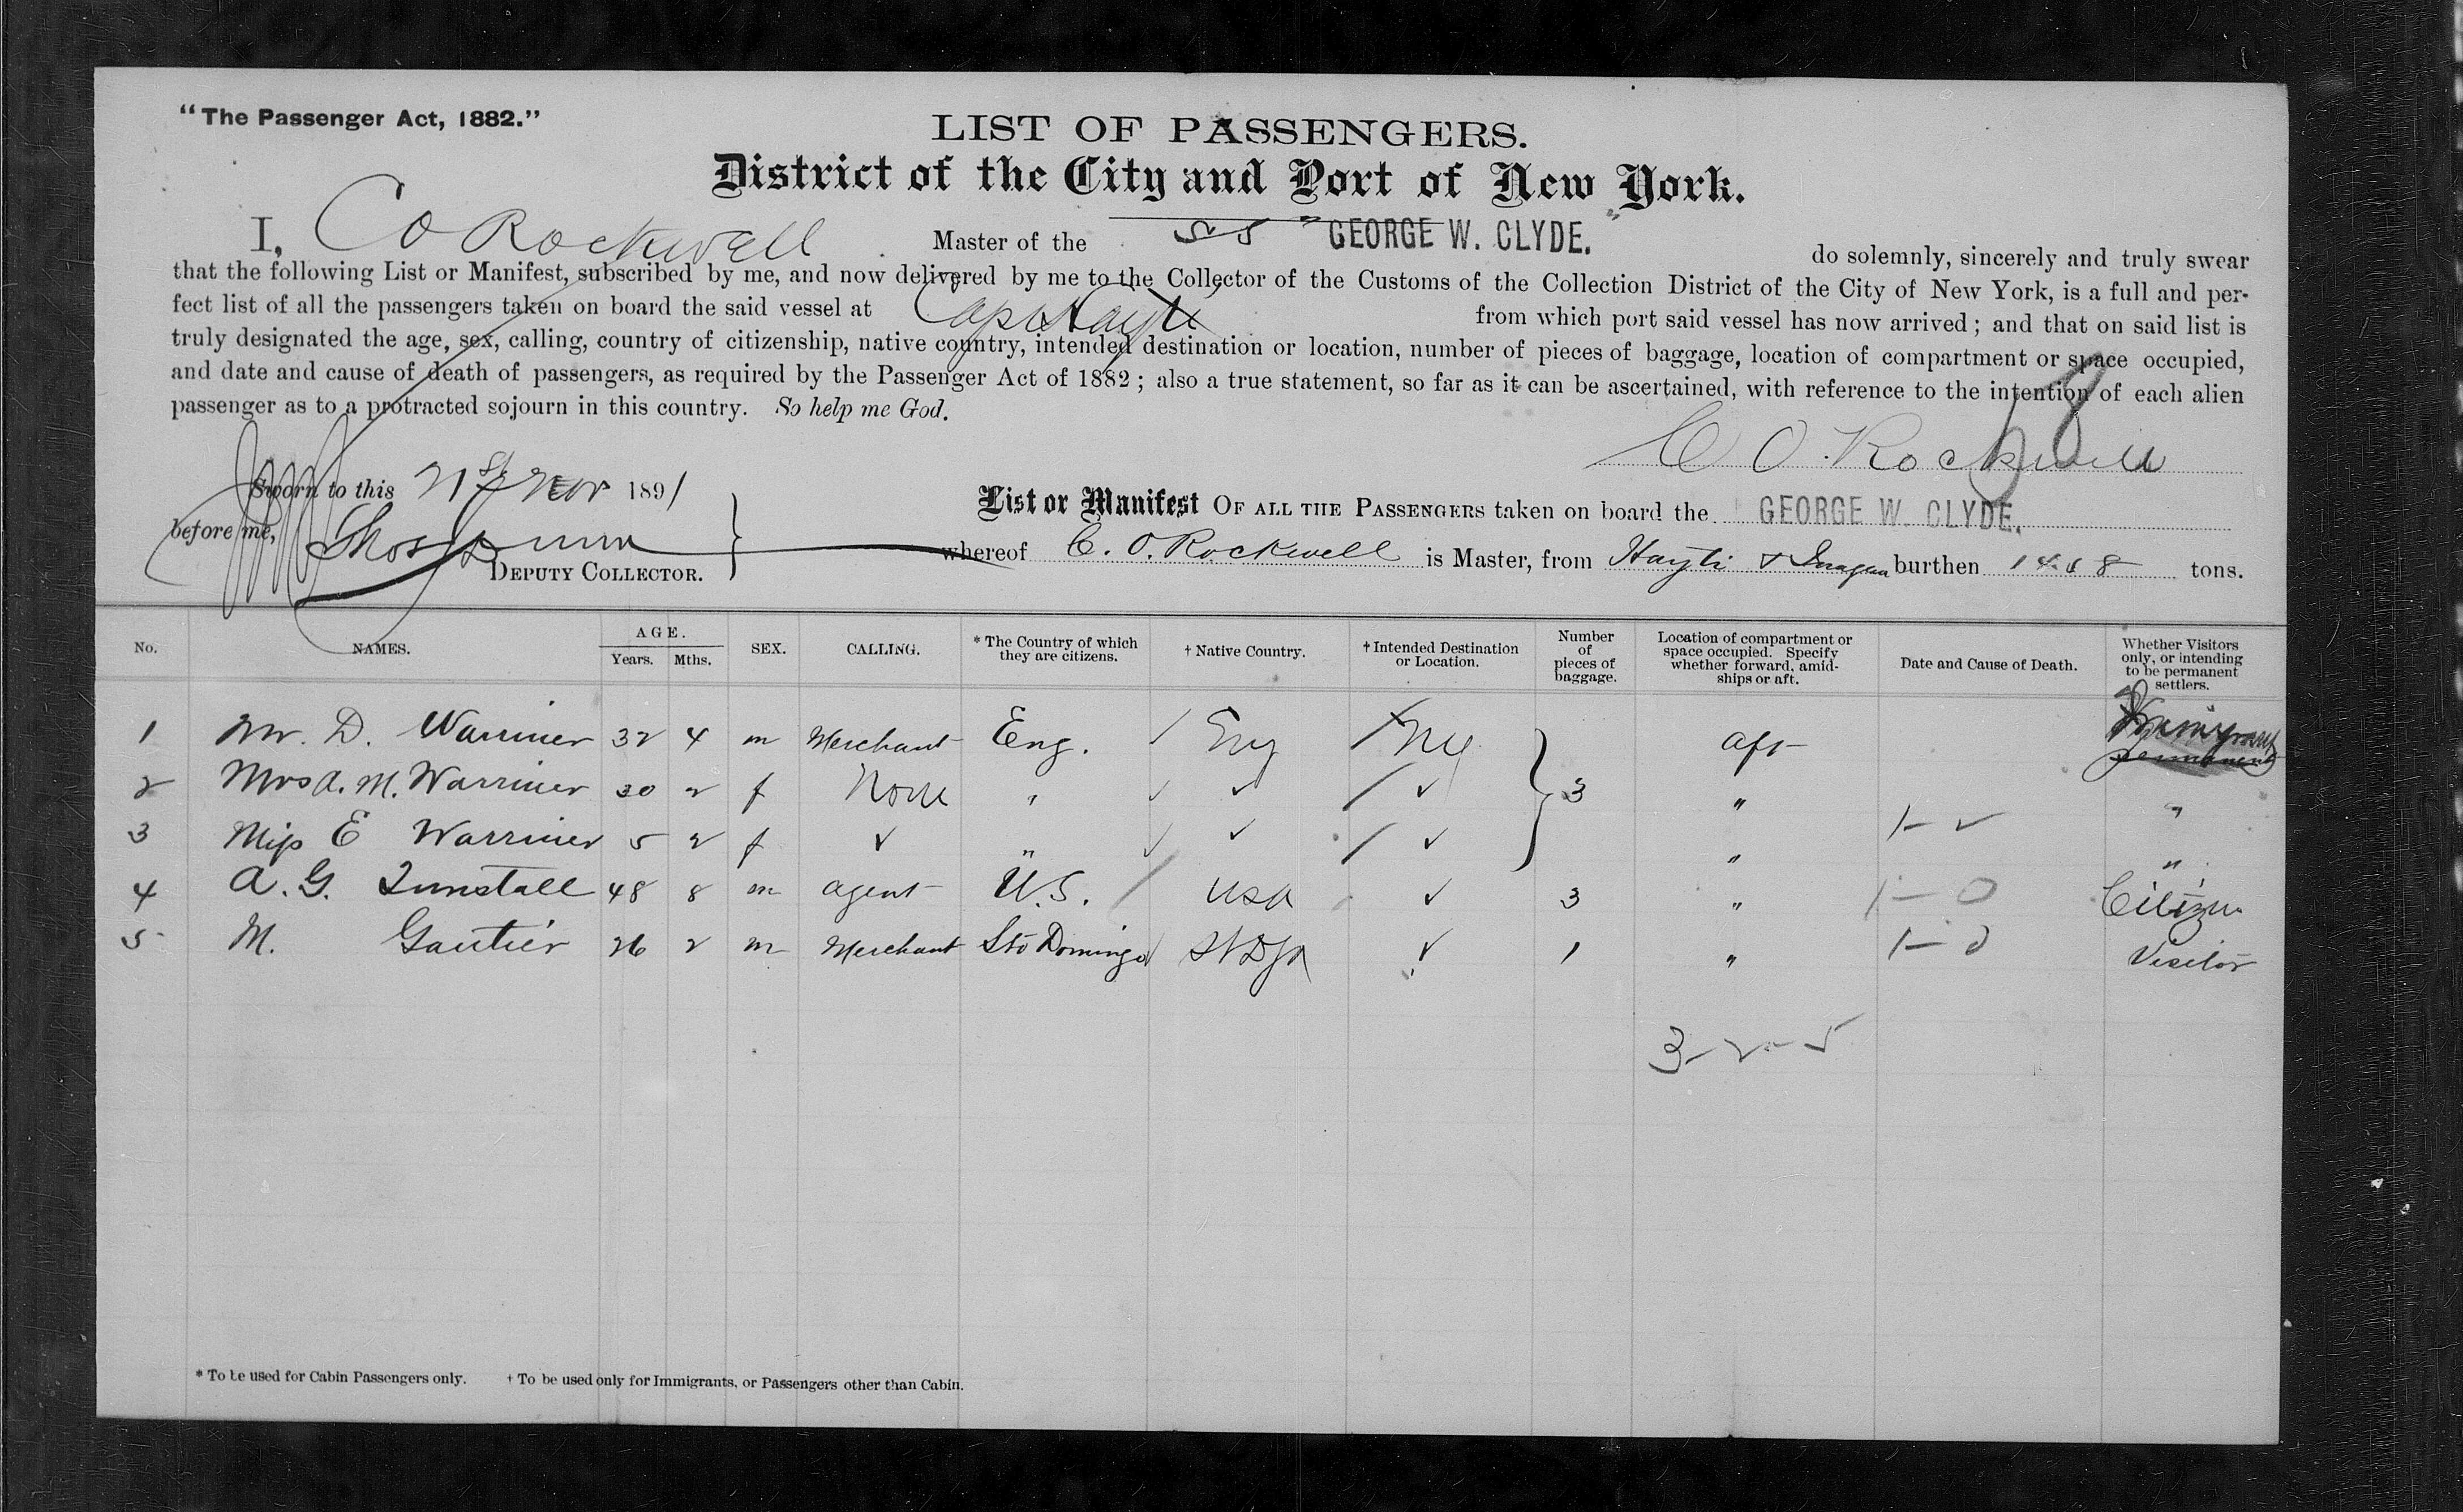 "The Passenger Act, 1882."
LIST OF PASSENGERS.
District of the City and Port of New York.
I, C O Rockwell Master of the SS "GEORGE W. CLYDE." do solemnly, sincerely and truly swear
that the following List or Manifest, subscribed by me, and now delivered by me to the Collector of the Customs of the Collection District of the City of New York, is a full and per-
fect list of all the passengers taken on board the said vessel at Cape Hayti from which port said vessel has now arrived; and that on said list is
truly designated the age, sex, calling, country of citizenship, native country, intended destination or location, number of pieces of baggage, location of compartment or space occupied,
and date and cause of death of passengers, as required by the Passenger Act of 1882; also a true statement, so far as it can be ascertained, with reference to the intention of each alien
passenger as to a protracted sojourn in this country. So help me God.
C O. Rockwell
Sworn to this 21st Nov 1891
before me, Thos Dunn
DEPUTY COLLECTOR.
List or Manifest OF ALL THE PASSENGERS taken on board the GEORGE W. CLYDE.
whereof C. O. Rockwell is Master, from Hayti & Inagua burthen tons.
No. NAMES. AGE. Years. Mths. SEX. CALLING. * The Country of which they are citizens. † Native Country. † Intended Destination or Location. Number of pieces of baggage. Location of compartment or space occupied. Specify whether forward, amid-ships or aft. Date and Cause of Death. Whether Visitors only, or intending to be permanent settlers.
1 Mr. D. Warriner 32 4 m Merchant Eng. / Eng / NY aft
2 Mrs A. M. Warriner 30 2 f None " ✓ ✓ / ✓ 3 " "
3 Miss E Warriner 5 2 f ✓ " ✓ ✓ / ✓ " 1 - ✓ "
4 A. G. Tunstall 48 8 m agent U.S. / USA ✓ 3 " 1 - 0 Citizen
5 M. Gautier 26 2 m Merchant Sto Domingo ✓ 1 " Visitor
3 - 2 - 5
* To be used for Cabin Passengers only. † To be used only for Immigrants, or Passengers other than Cabin.